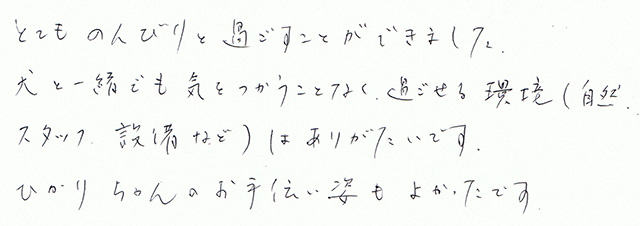 とてものんびりと過ごすことができました。
犬と一緒でも気をつかうことなく、過ごせる環境（自然、
スタッフ、設備など）はありがたいです。
ひかりちゃんのお手伝い姿もよかったです。